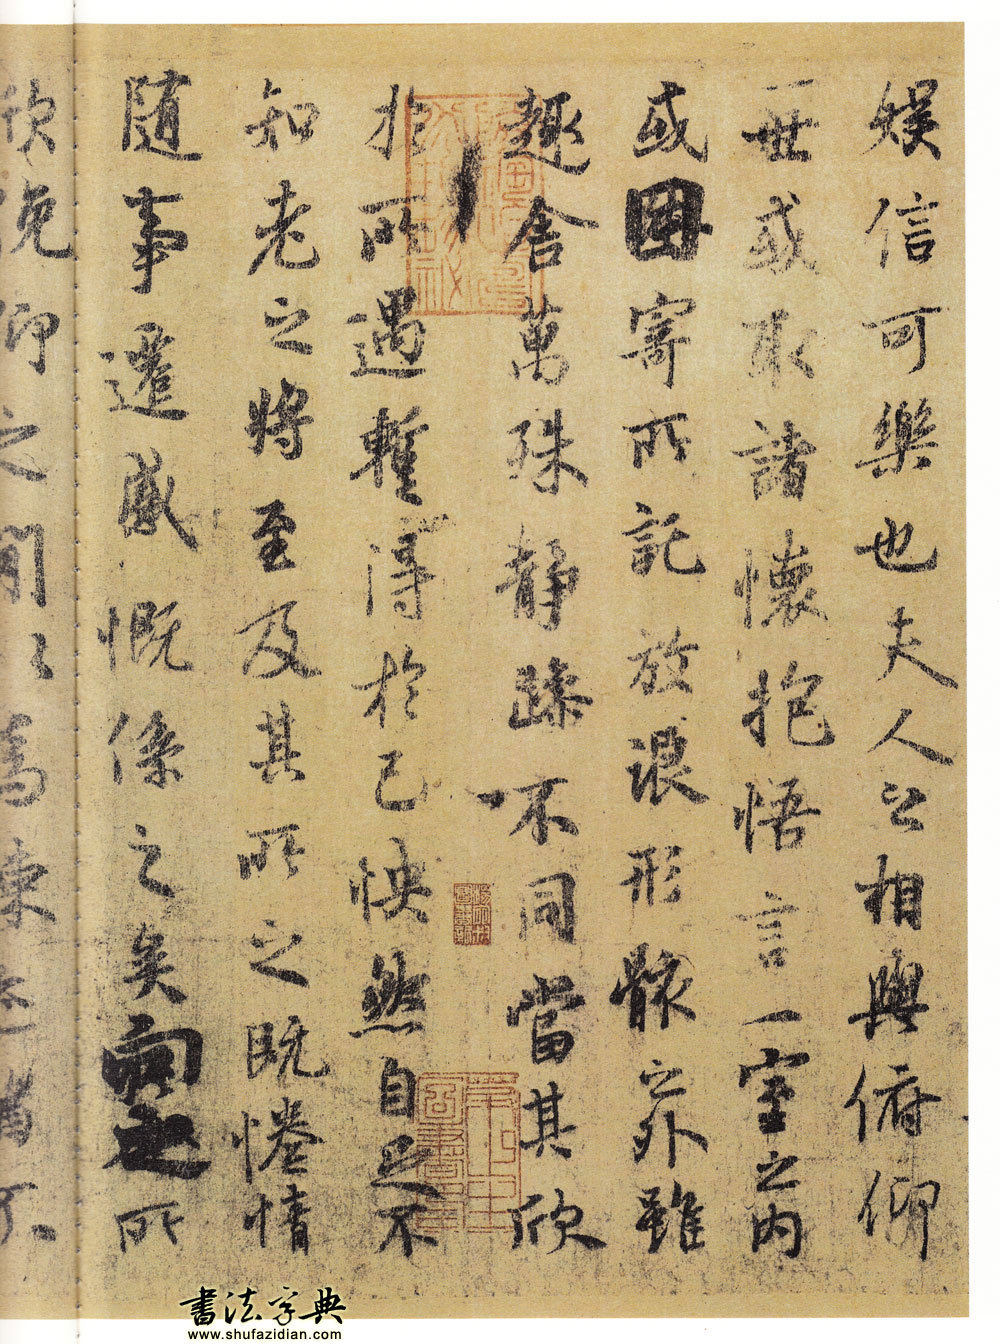 娛信可樂也夫人之相與俯仰
一世或取諸懷抱悟言一室之內
或因寄所託放浪形骸之外雖
趣舍萬殊靜躁不同當其欣
於所遇暫得於己怏然自足不
知老之將至及其所之既惓情
隨事遷感慨係之矣向之所
欣俛仰之閒以為陳迹猶不
書法字典
www.shufazidian.com